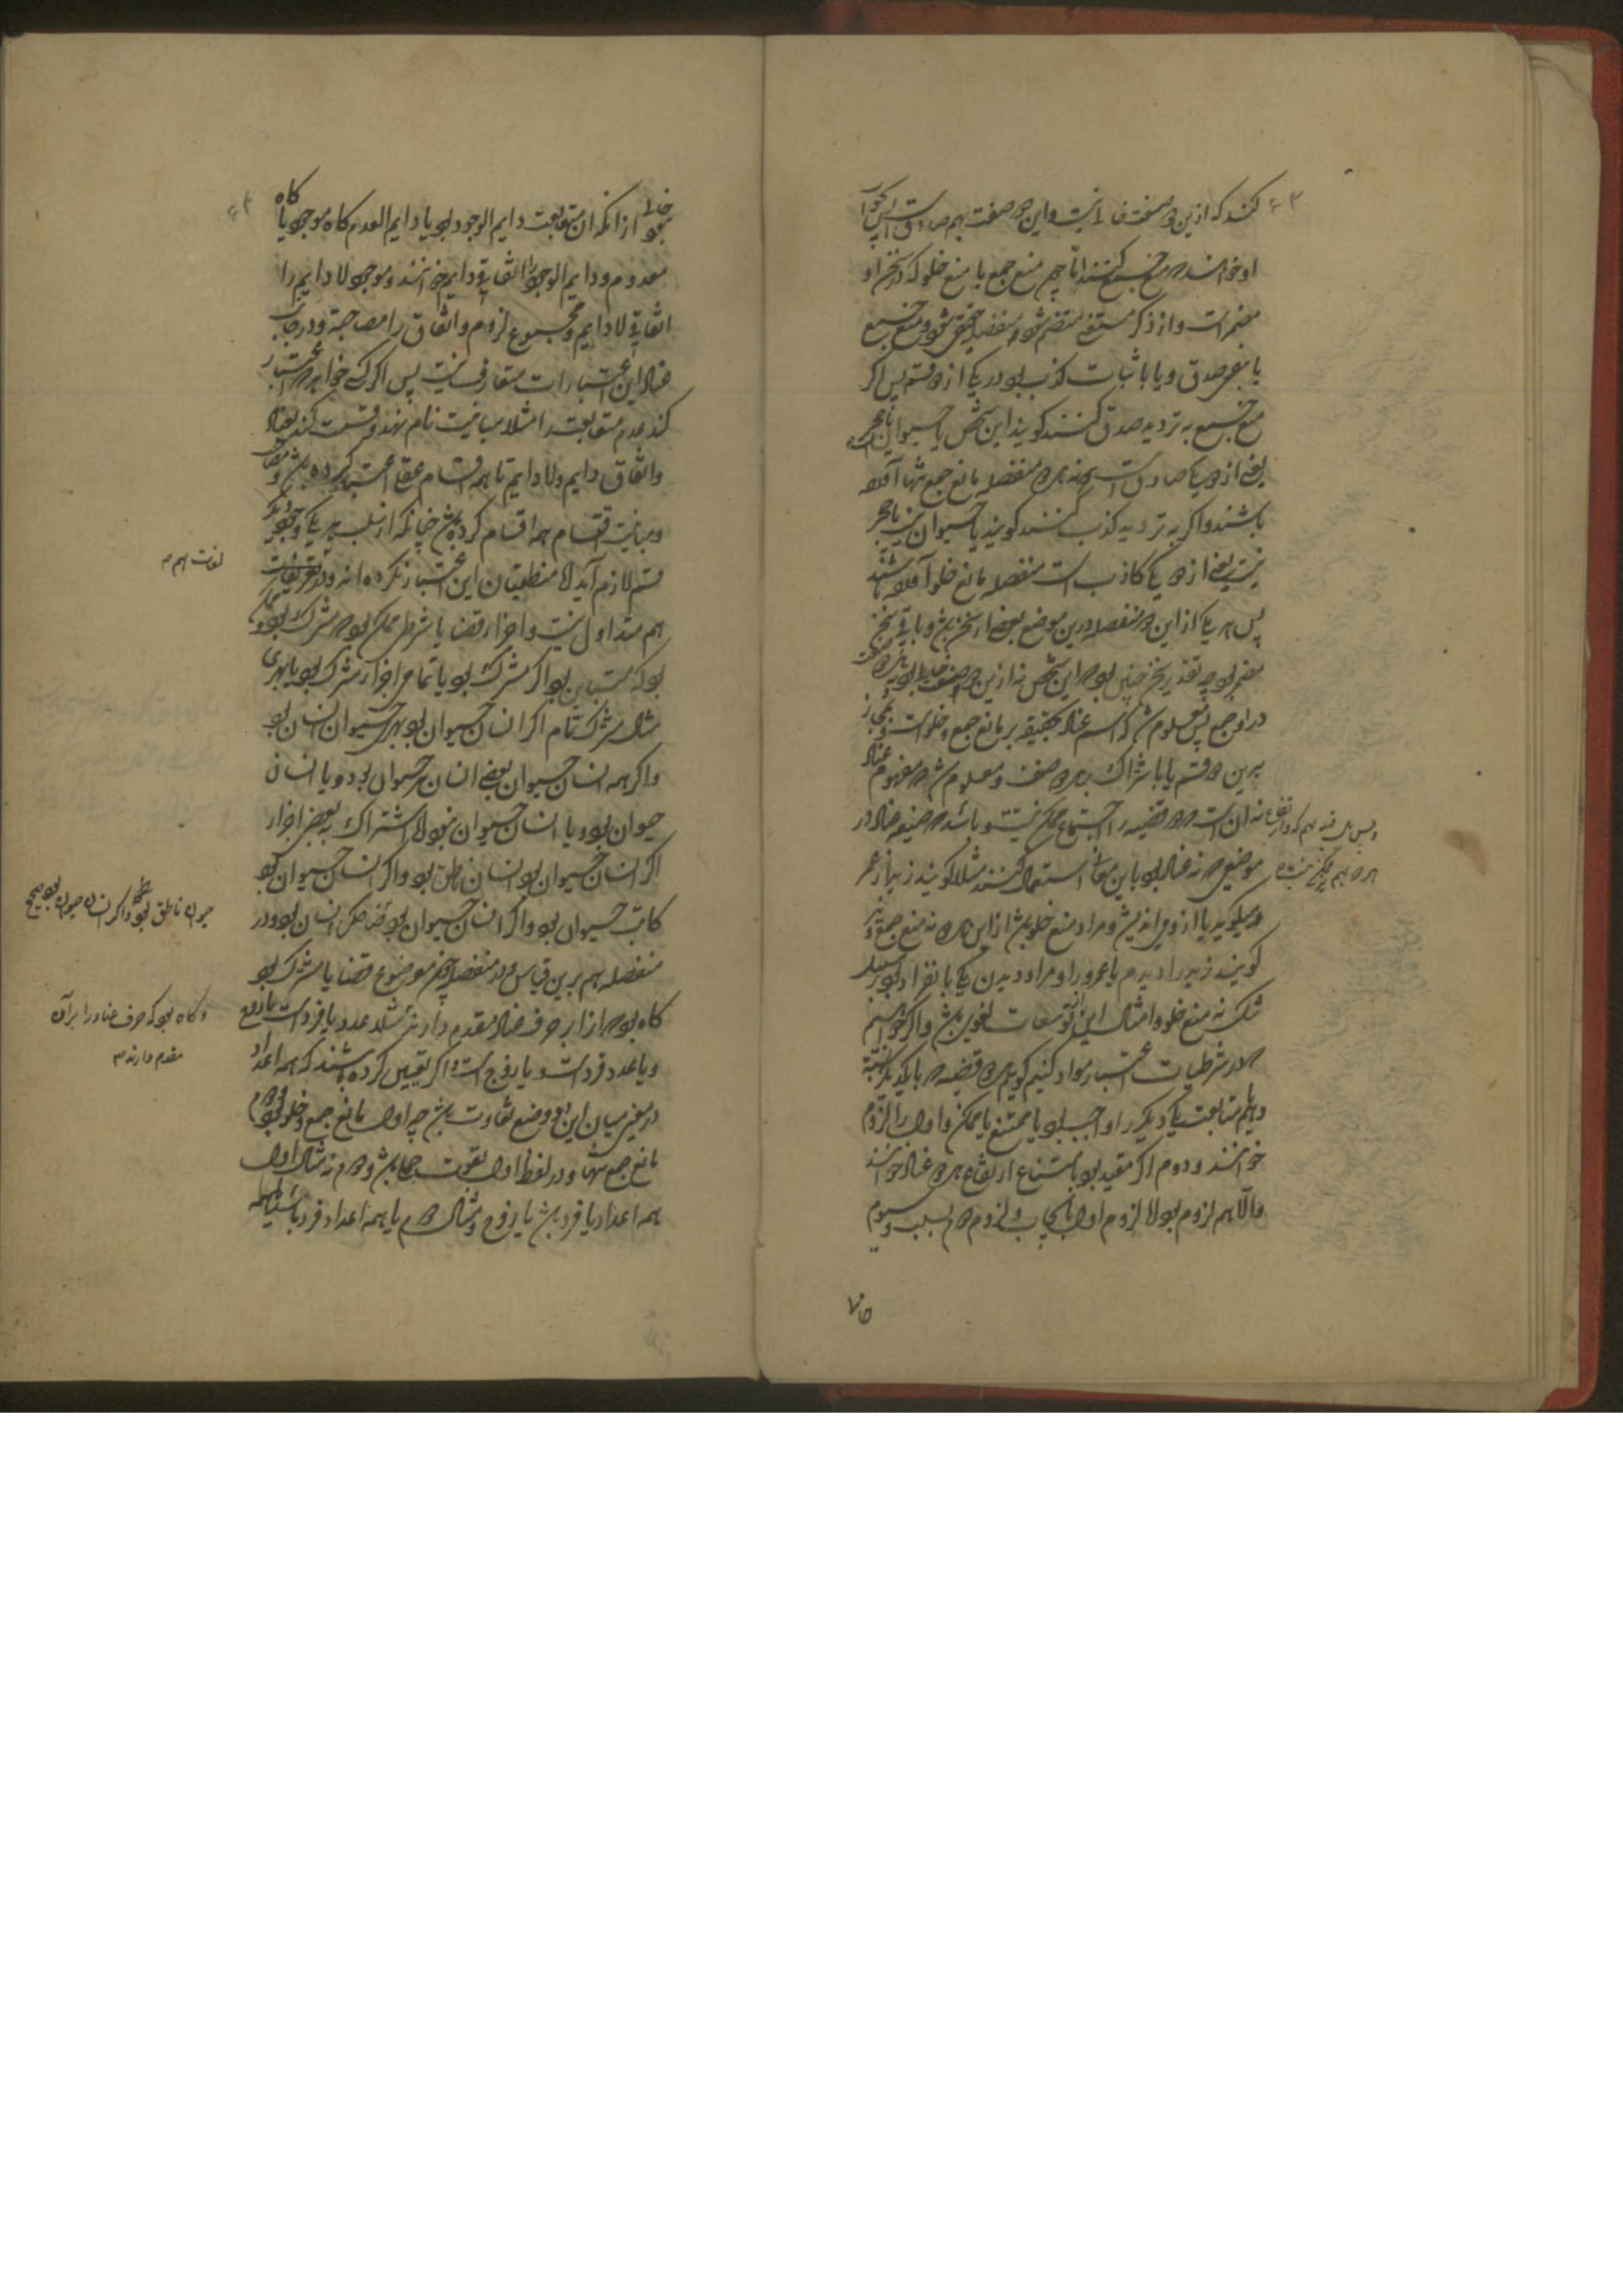 کنند که ازین دو صفت خالی نیست و این دو صفت بهم صادق است پس اگر آن
او خواند منع جمع کنند اما چون منع جمع با منع خلو که در سخن او
مضمر است و از ذکر مستغنی منضم شود منفصله حقیقی شود و منع جمع
یا بنفی صدق و یا باثبات کذب بود در یکی از دو قسم پس اگر
منع جمع به تردید صدق کنند گویند این شخص یا حیوان یا حجر است
یعنی از دو یکی صادق است نه هر دو منفصله مانع جمع تنها آمده
باشند و اگر به تردید کذب کنند گویند یا حیوان نیست یا حجر
نیست یعنی از دو یکی کاذب است منفصله مانع خلو آمده باشند
پس هر یکی از این دو منفصله درین موضع بعضی از سخن باشد و باقی سخن
مضمر بود چه تقدیر سخن چنین بود که این شخص نه ازین دو صفت خالی بود نه هر دو صفت
درو جمع پس معلوم شد که اسم عناد بحقیقه بر مانع جمع و خلو است و بمجاز
برین دو قسم یا باشتراک بر هر دو صنف و معلوم شد که مفهوم عناد
نه آن است که دو قضیه را اجتماع ممکن نیست و باشد که صیغه عناد در
موضعی که نه عناد بود باین معانی استعمال کنند مثلا گویند زید از عمر
میگوید یا ازو می اندیشد و مراد منع خلو باشد ازین هر دو نه منع جمع و نیز
گویند زید را دیدم یا عمرو را و مراد دیدن یکی بانفراد بود بر سبیل
شک نه منع خلو و امثال این از توسعات لغوی باشد و اگر خواهیم
که در شرطیات اعتبار مواد کنیم گوییم هر دو قضیه که با یکدیگر نسبت
دهیم متابعت یکدیگر را واجب بود یا ممتنع یا ممکن و اول را لزوم
خوانند و دوم اگر مقید بود بامتناع ارتفاع هر دو عناد خوانند
والا هم لزوم بود الا لزوم اول بایجاب و لزوم دوم بسلب و سیوم
۷۵
خالی نبود از آنکه آن متابعت دایم الوجود بود یا دایم العدم گاه موجود یا گاه
معدوم و دایم الوجود را اتفاقی دایم خوانند و موجود لا دایم را
اتفاقی لا دایم و مجموع لزوم و اتفاق را مصاحبة و در جانب
عناد این اعتبارات متعارف نیست پس اگر کسی خواهد که اعتبار
کند عدم متابعت را مثلا مباینت نام نهد و قسمت کند بعناد
و اتفاق دایم و لا دایم تا همه اقسام عقلی اعتبار کرده باشد
و مباینت اقسام همه اقسام کرده باشد چنانکه از سلب هر یکی وجود دیگر
قسم لازم آید الا منطقیان این اعتبار نکرده اند و در تعریفات
لغات هم
هم متداول نیست و اجزاء قضایا شرطی ممکن بود که مشترک بود و ممکن
بود که متباین بود اگر مشترک بود یا تمام اجزا مشترک بود یا بهری
مثال مشترک تام اگر انسان حیوان بود بهری حیوان انسان بود
و اگر همه انسان حیوان بعضی انسان حیوان بود و یا انسان
حیوان بود و یا انسان حیوان نبود الا اشتراک به بعضی اجزا
اگر انسان حیوان بود انسان ناطق بود و اگر انسان حیوان بود
کاتب حیوان بود و اگر انسان حیوان بود ضاحک انسان بود و در
حیوان ناطق بود و اگر انسان حیوان بود هیچ
منفصله هم برین قیاس و در منفصله چون موضوع قضایا مشترک بود
گاه بود که از ابر حرف عناد مقدم دارند مثلا عدد یا فرد است یا زوج
و گاه بود که حرف عناد را برآن
مقدم دارند
و یا عدد فرد است و یا زوج است و اگر تعیین کرده باشند که همه اعداد
در معنی میان این دو وضع تفاوت باشد چه اول مانع جمع و خلو بود و دوم
مانع جمع تنها و در لفظ اول بقوت حملی باشد و دوم نه مثال اول
همه اعداد یا فرد باشد یا زوج و مثال دوم یا همه اعداد فرد باشد یا همه